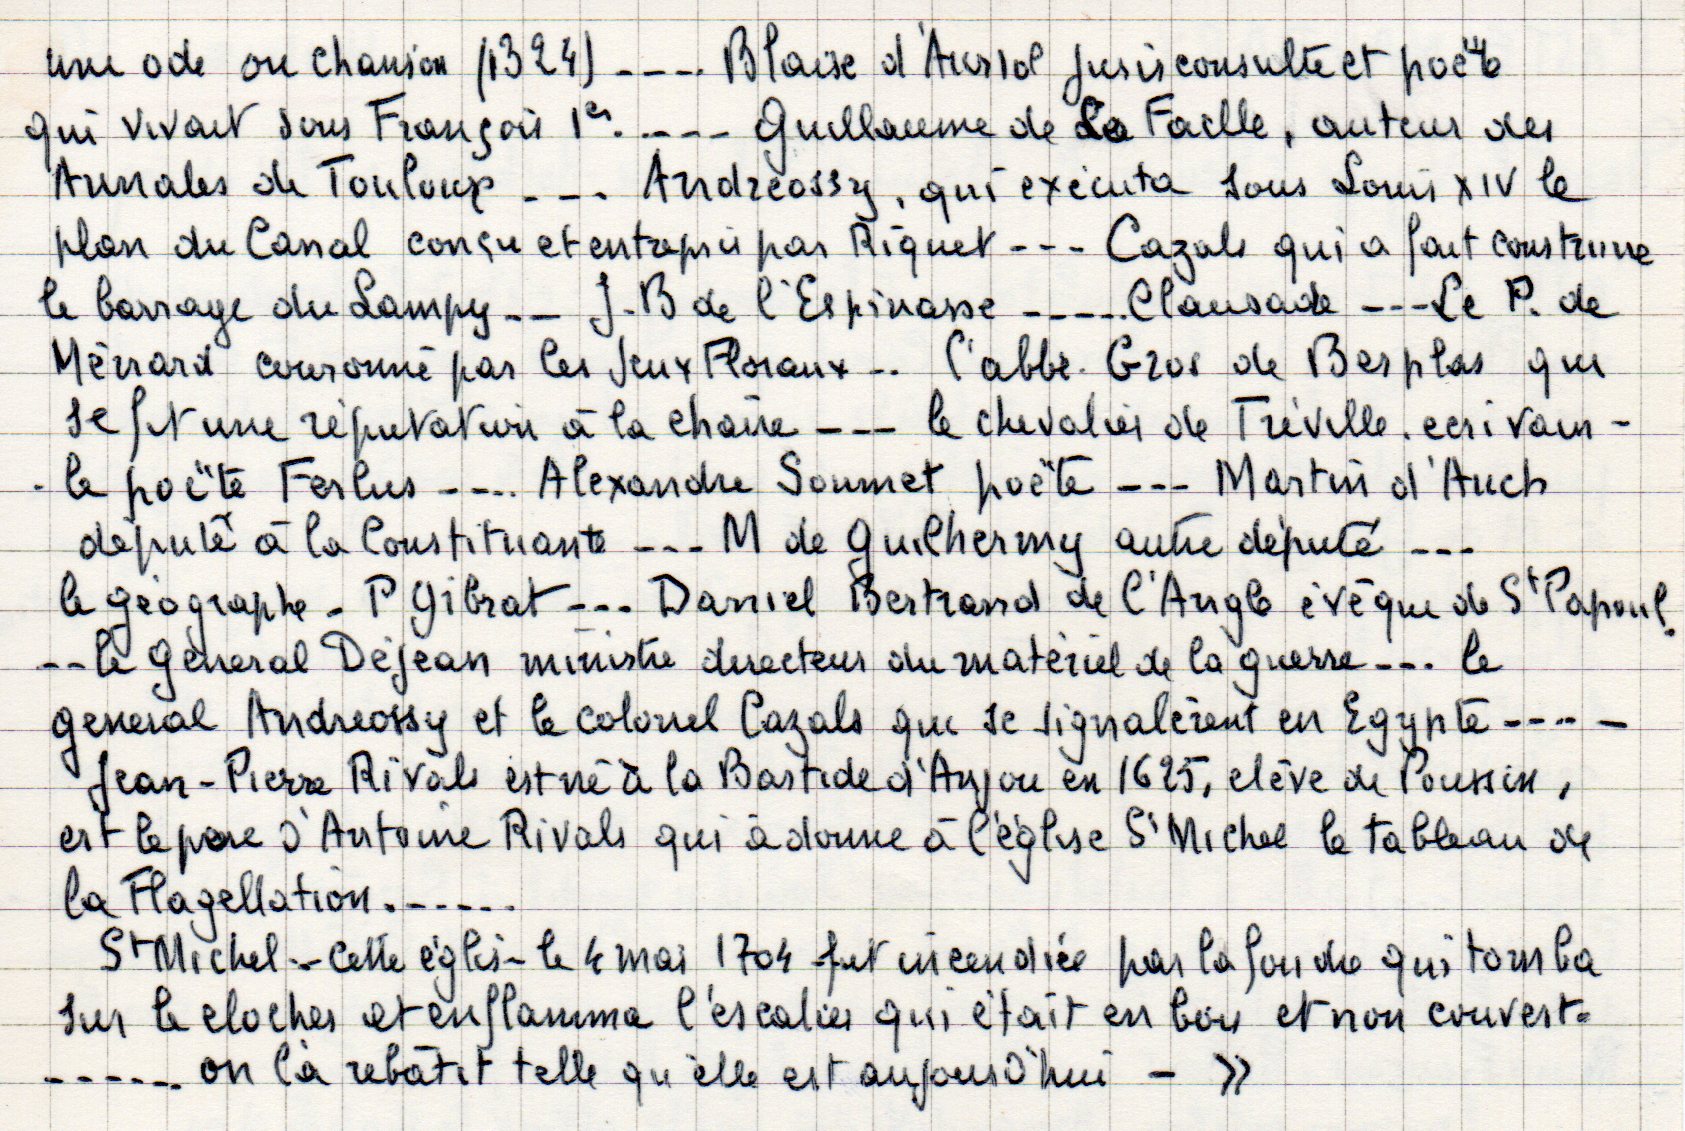 une ode ou chanson (1324) ---- Blaise d'Auriol jurisconsulte et poëte
qui vivait sous François 1er. ---- Guillaume de La Faille, auteur des
Annales de Toulouse --- Andréossy, qui exécuta sous Louis XIV le
plan du Canal conçu et entrepris par Riquet --- Cazals qui a fait construire
le barrage du Lampy -- J-B de l'Espinasse ----- Clausade --- Le P. de
Ménard couronné par les Jeux Floraux -- l'abbé. Gros de Besplas qui
se fit une réputation à la chaire --- le chevalier de Tréville. ecrivain -
- le poëte Ferlus ---- Alexandre Soumet poëte --- Martin d'Auch
député à la Constituante --- M de Guilhermy autre député ---
le géographe - P Gibrat --- Daniel Bertrand de l'Angle évêque de St Papoul.
-- le général Déjean ministre directeur du matériel de la guerre --- le
general Andreossy et le colonel Cazals qui se signalèrent en Egypte ---- -
Jean-Pierre Rivals est né à la Bastide d'Anjou en 1625, elève de Poussin,
est le père d'Antoine Rivals qui à donne à l'église St Michel le tableau de
la Flagellation. ------
St Michel -- Cette église - le 4 mai 1704 fut incendiée par la foudre qui tomba
sur le clocher et enflamma l'escalier qui était en bois et non couvert -
------ on l'a rebâtit telle qu'elle est aujourd'hui - »